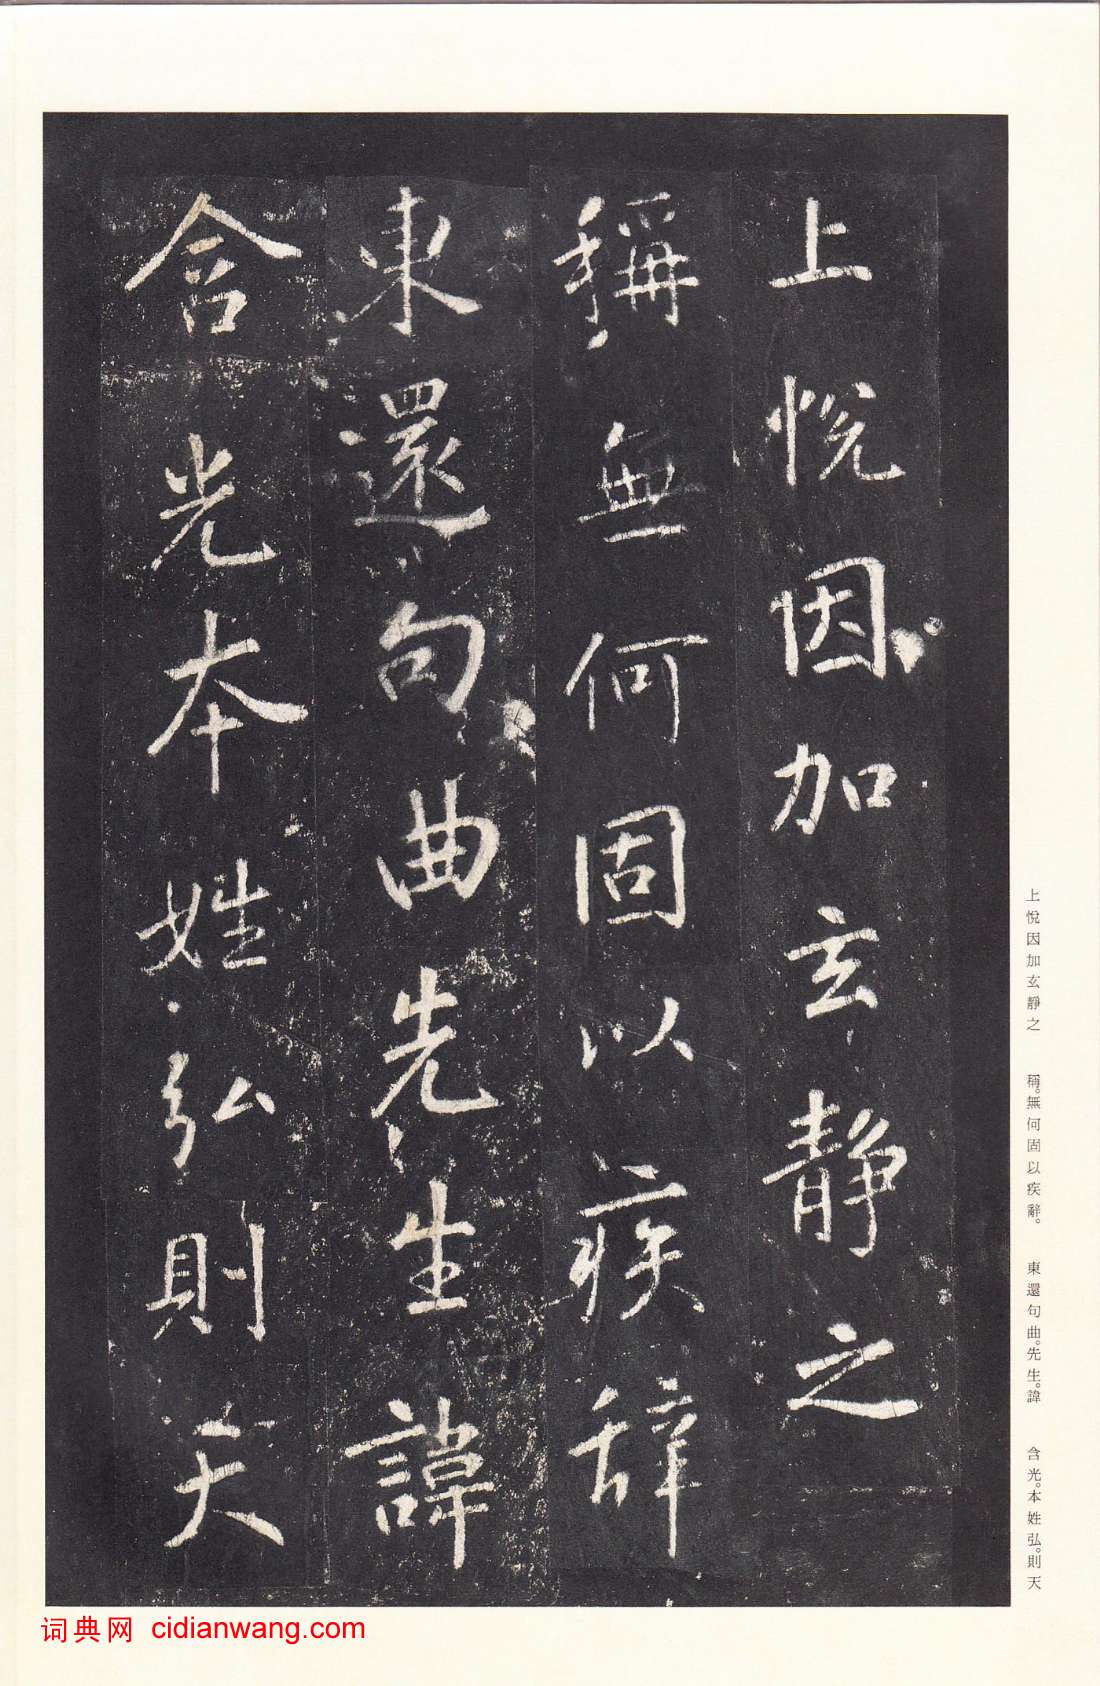 上悅因加玄靜之
稱無何固以疾辞
東還句曲先生諱
含光本姓弘則天
上悅因加玄靜之　稱。無何固以疾辭。　東還句曲。先生。諱　含光。本姓弘。則天
词典网 cidianwang.com